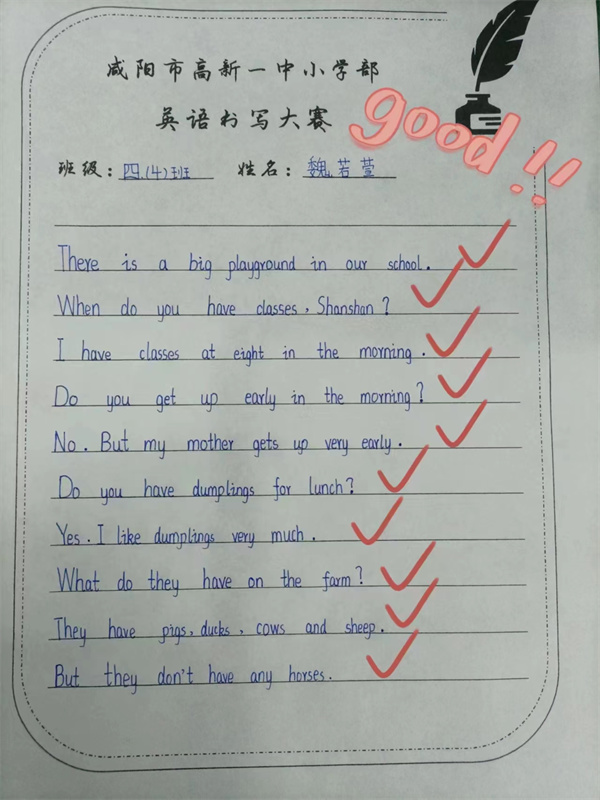 咸阳市高新一中小学部
英语书写大赛
good!!
班级：四.(4)班 姓名：魏若萱
There is a big playground in our school.
When do you have classes, Shanshan?
I have classes at eight in the morning.
Do you get up early in the morning?
No. But my mother gets up very early.
Do you have dumplings for lunch?
Yes. I like dumplings very much.
What do they have on the farm?
They have pigs, ducks, cows and sheep.
But they don't have any horses.